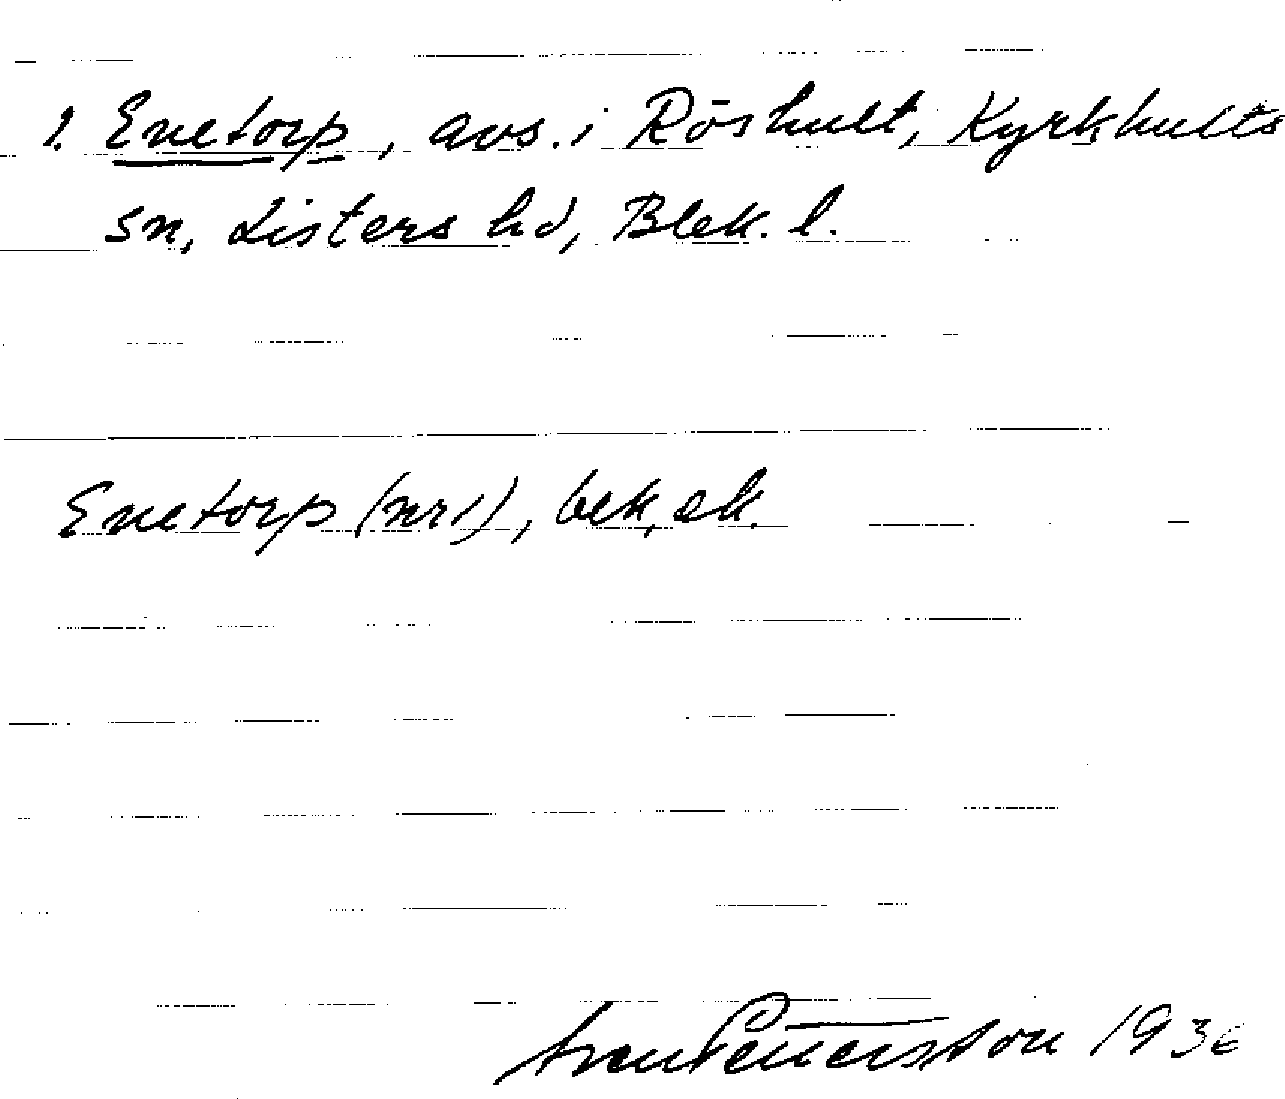 1. Enetorp, avs. i Röshult, Kyrkhults
sn, Listers hd, Blek. l.
Enetorp (nr 1), bek, ek.
Pettersson 1936